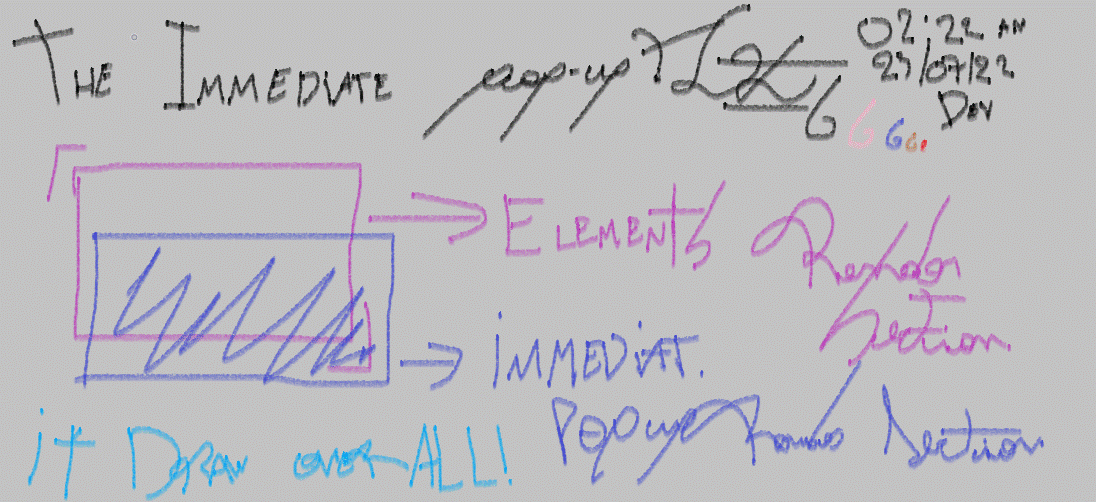 THE IMMEDIATE pop-up
02:22 AM
/07/22
DEV
ELEMENTS Render
Section
iMMEDiAT.
POPUP Section
iT DRAW OVER ALL!